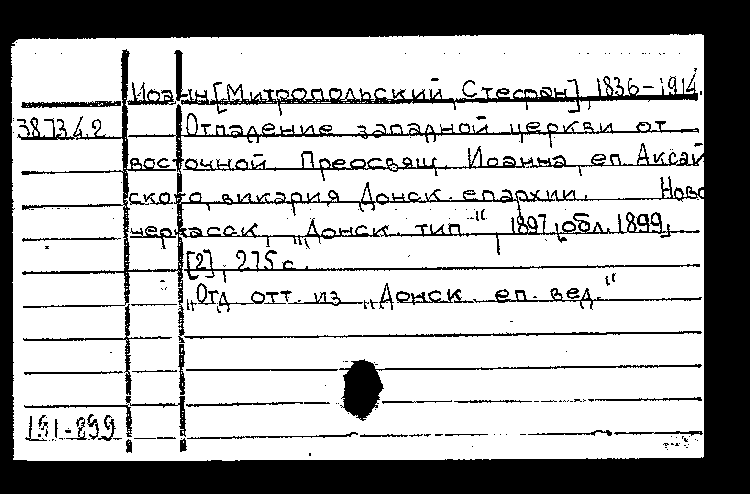 Иоанн [Митропольский, Стефан], 1836-1914.
38.73.4.2 Отпадение западной церкви от
восточной. Преосвящ. Иоанна, еп. Аксай
ского, викария Донск. епархии. Ново
черкасск, „Донск. тип.“, 1897, обл. 1899,
[2], 275 с.
„Отд. отт. из „Донск. еп. вед.“
191-899